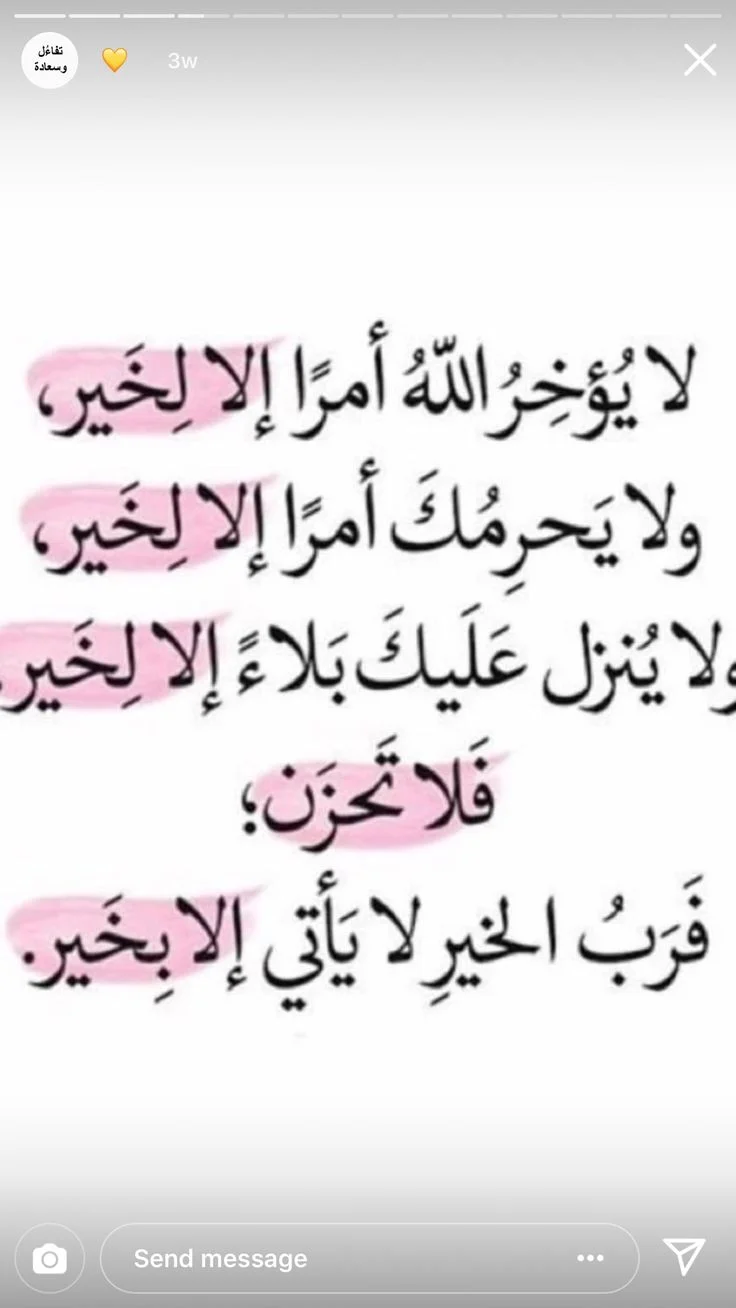 تفاؤل
وسعادة
💛 3w
لا يُؤخِرُ اللّهُ أمرًا إلا لِخَير،
ولا يَحرِمُكَ أمرًا إلا لِخَير،
ولا يُنزل عَليكَ بَلاءً إلا لِخَير،
فَلا تَحزَن؛
فَرَبُ الخيرِ لا يَأتي إلا بِخَير.
Send message